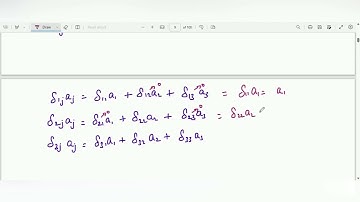 Draw
4
of 100
δ₁ⱼaⱼ = δ₁₁a₁ + δ₁₂a₂⁰ + δ₁₃a₃⁰ = δ₁₁a₁ = a₁
δ₂ⱼaⱼ = δ₂₁a₁⁰ + δ₂₂a₂ + δ₂₃a₃⁰ = δ₂₂a₂
δ₃ⱼ aⱼ = δ₃₁a₁ + δ₃₂ a₂ + δ₃₃ a₃